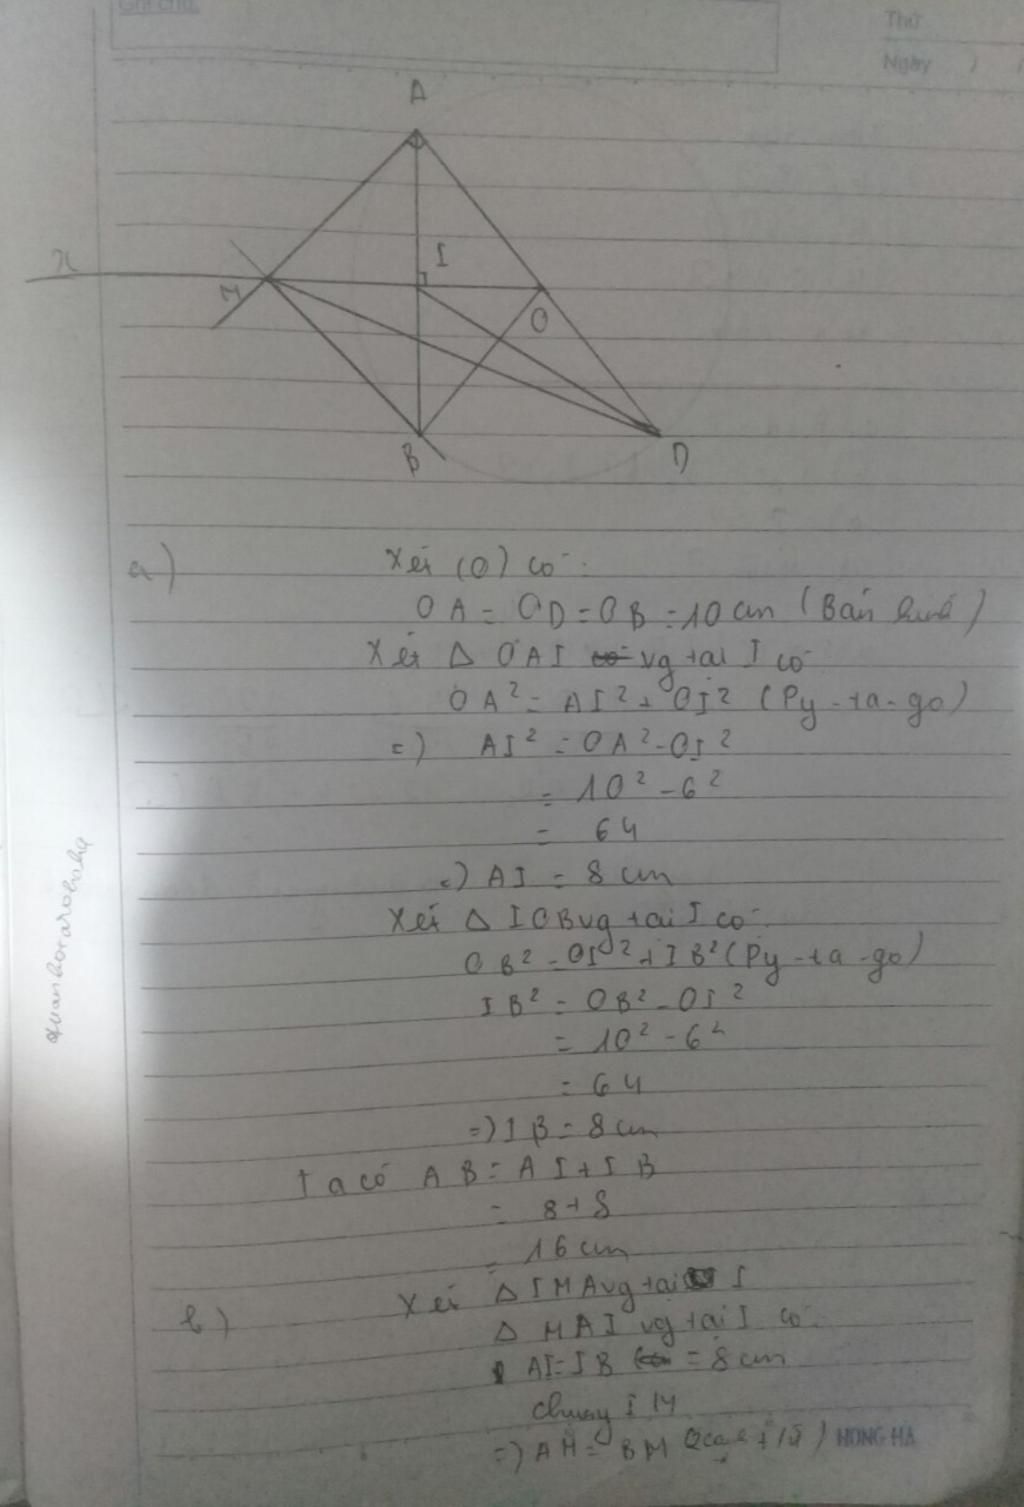 Ghi chú:
Thứ
Ngày / /
A
x
I
M
O
B
D
a) Xét (O) có:
OA = OD = OB = 10 cm (Bán kính)
Xét Δ OAI vg tại I có
OA² = AI² + OI² (Py-ta-go)
=) AI² = OA² - OI²
= 10² - 6²
= 64
=) AI = 8 cm
Xét Δ IOB vg tại I có
OB² = OI² + IB² (Py-ta-go)
IB² = OB² - OI²
= 10² - 6²
= 64
=) IB = 8 cm
Ta có AB = AI + IB
= 8 + 8
= 16 cm
b) Xét Δ IMA vg tại I
Δ MAI vg tại I có
AI = IB = 8 cm
chung IM
=) AM = BM (2 cạnh t/ứ)
HONG HA